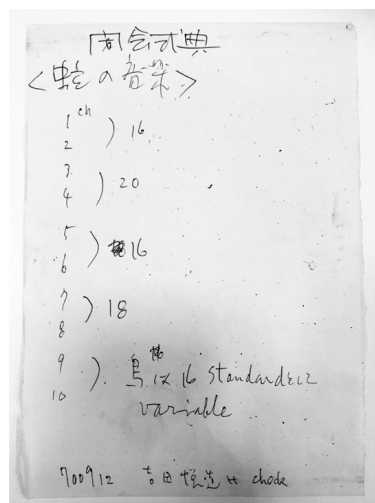 閉会式典
<虫の音楽>
1 ch
2 ) 16
3
4 ) 20
5
6 ) 16
7
8 ) 18
9
10 ) 鳥は 16 standardに
variable
700912 吉田 check